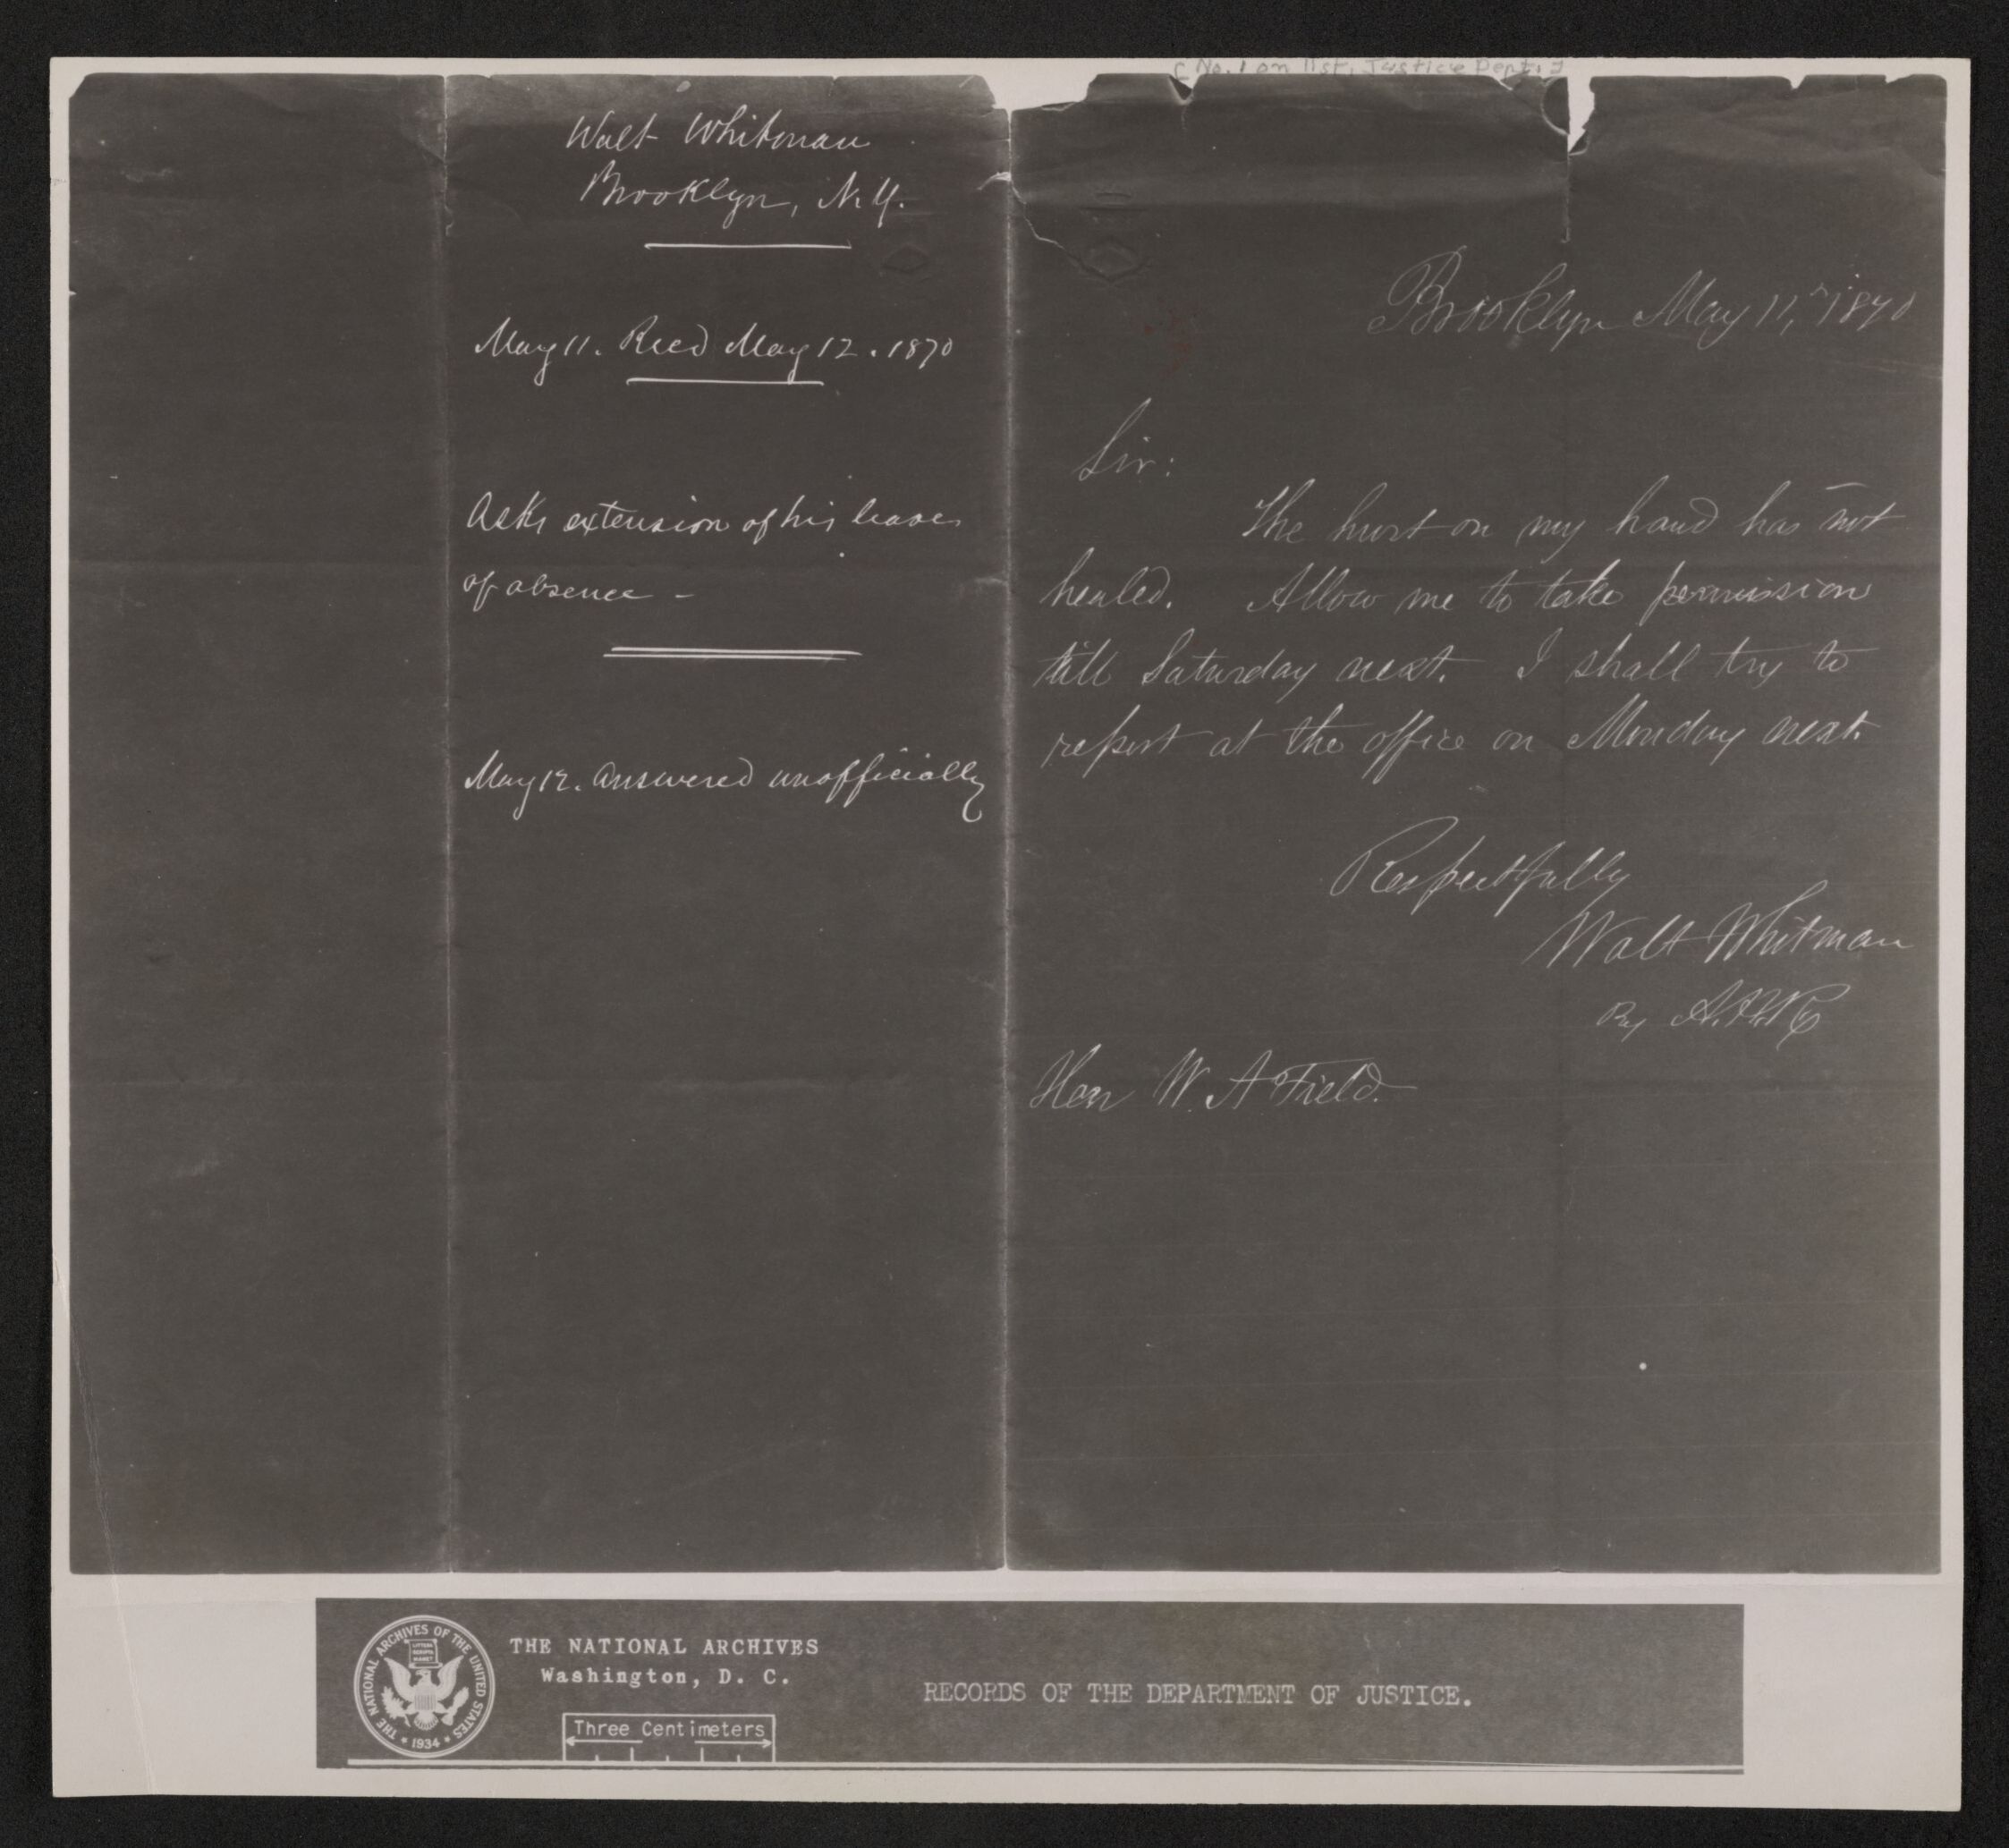 [No. 1 on list, Justice Dept.]
Walt Whitman
Brooklyn, N.Y.
May 11. Recd May 12. 1870
Asks extension of his leave
of absence –
May 12. Answered unofficially
Brooklyn May 11, 1870
Sir:
The hurt on my hand has not
healed. Allow me to take permission
till Saturday next. I shall try to
report at the office on Monday next.
Respectfully
Walt Whitman
By
Hon W. A Field.
THE NATIONAL ARCHIVES OF THE UNITED STATES
LITTERA SCRIPTA MANET
* 1934 *
THE NATIONAL ARCHIVES
Washington, D. C.
Three Centimeters
RECORDS OF THE DEPARTMENT OF JUSTICE.